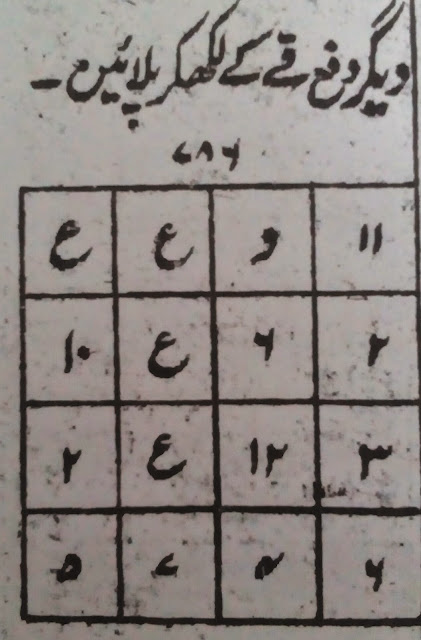 دیگر دفع قے کے لکھکر پلائیں۔
۷۸۶
۱۱ و ع ع
۲ ۶ ع ۱۰
۳ ۱۲ ع ۲
۶ ۴ ۷ ۵